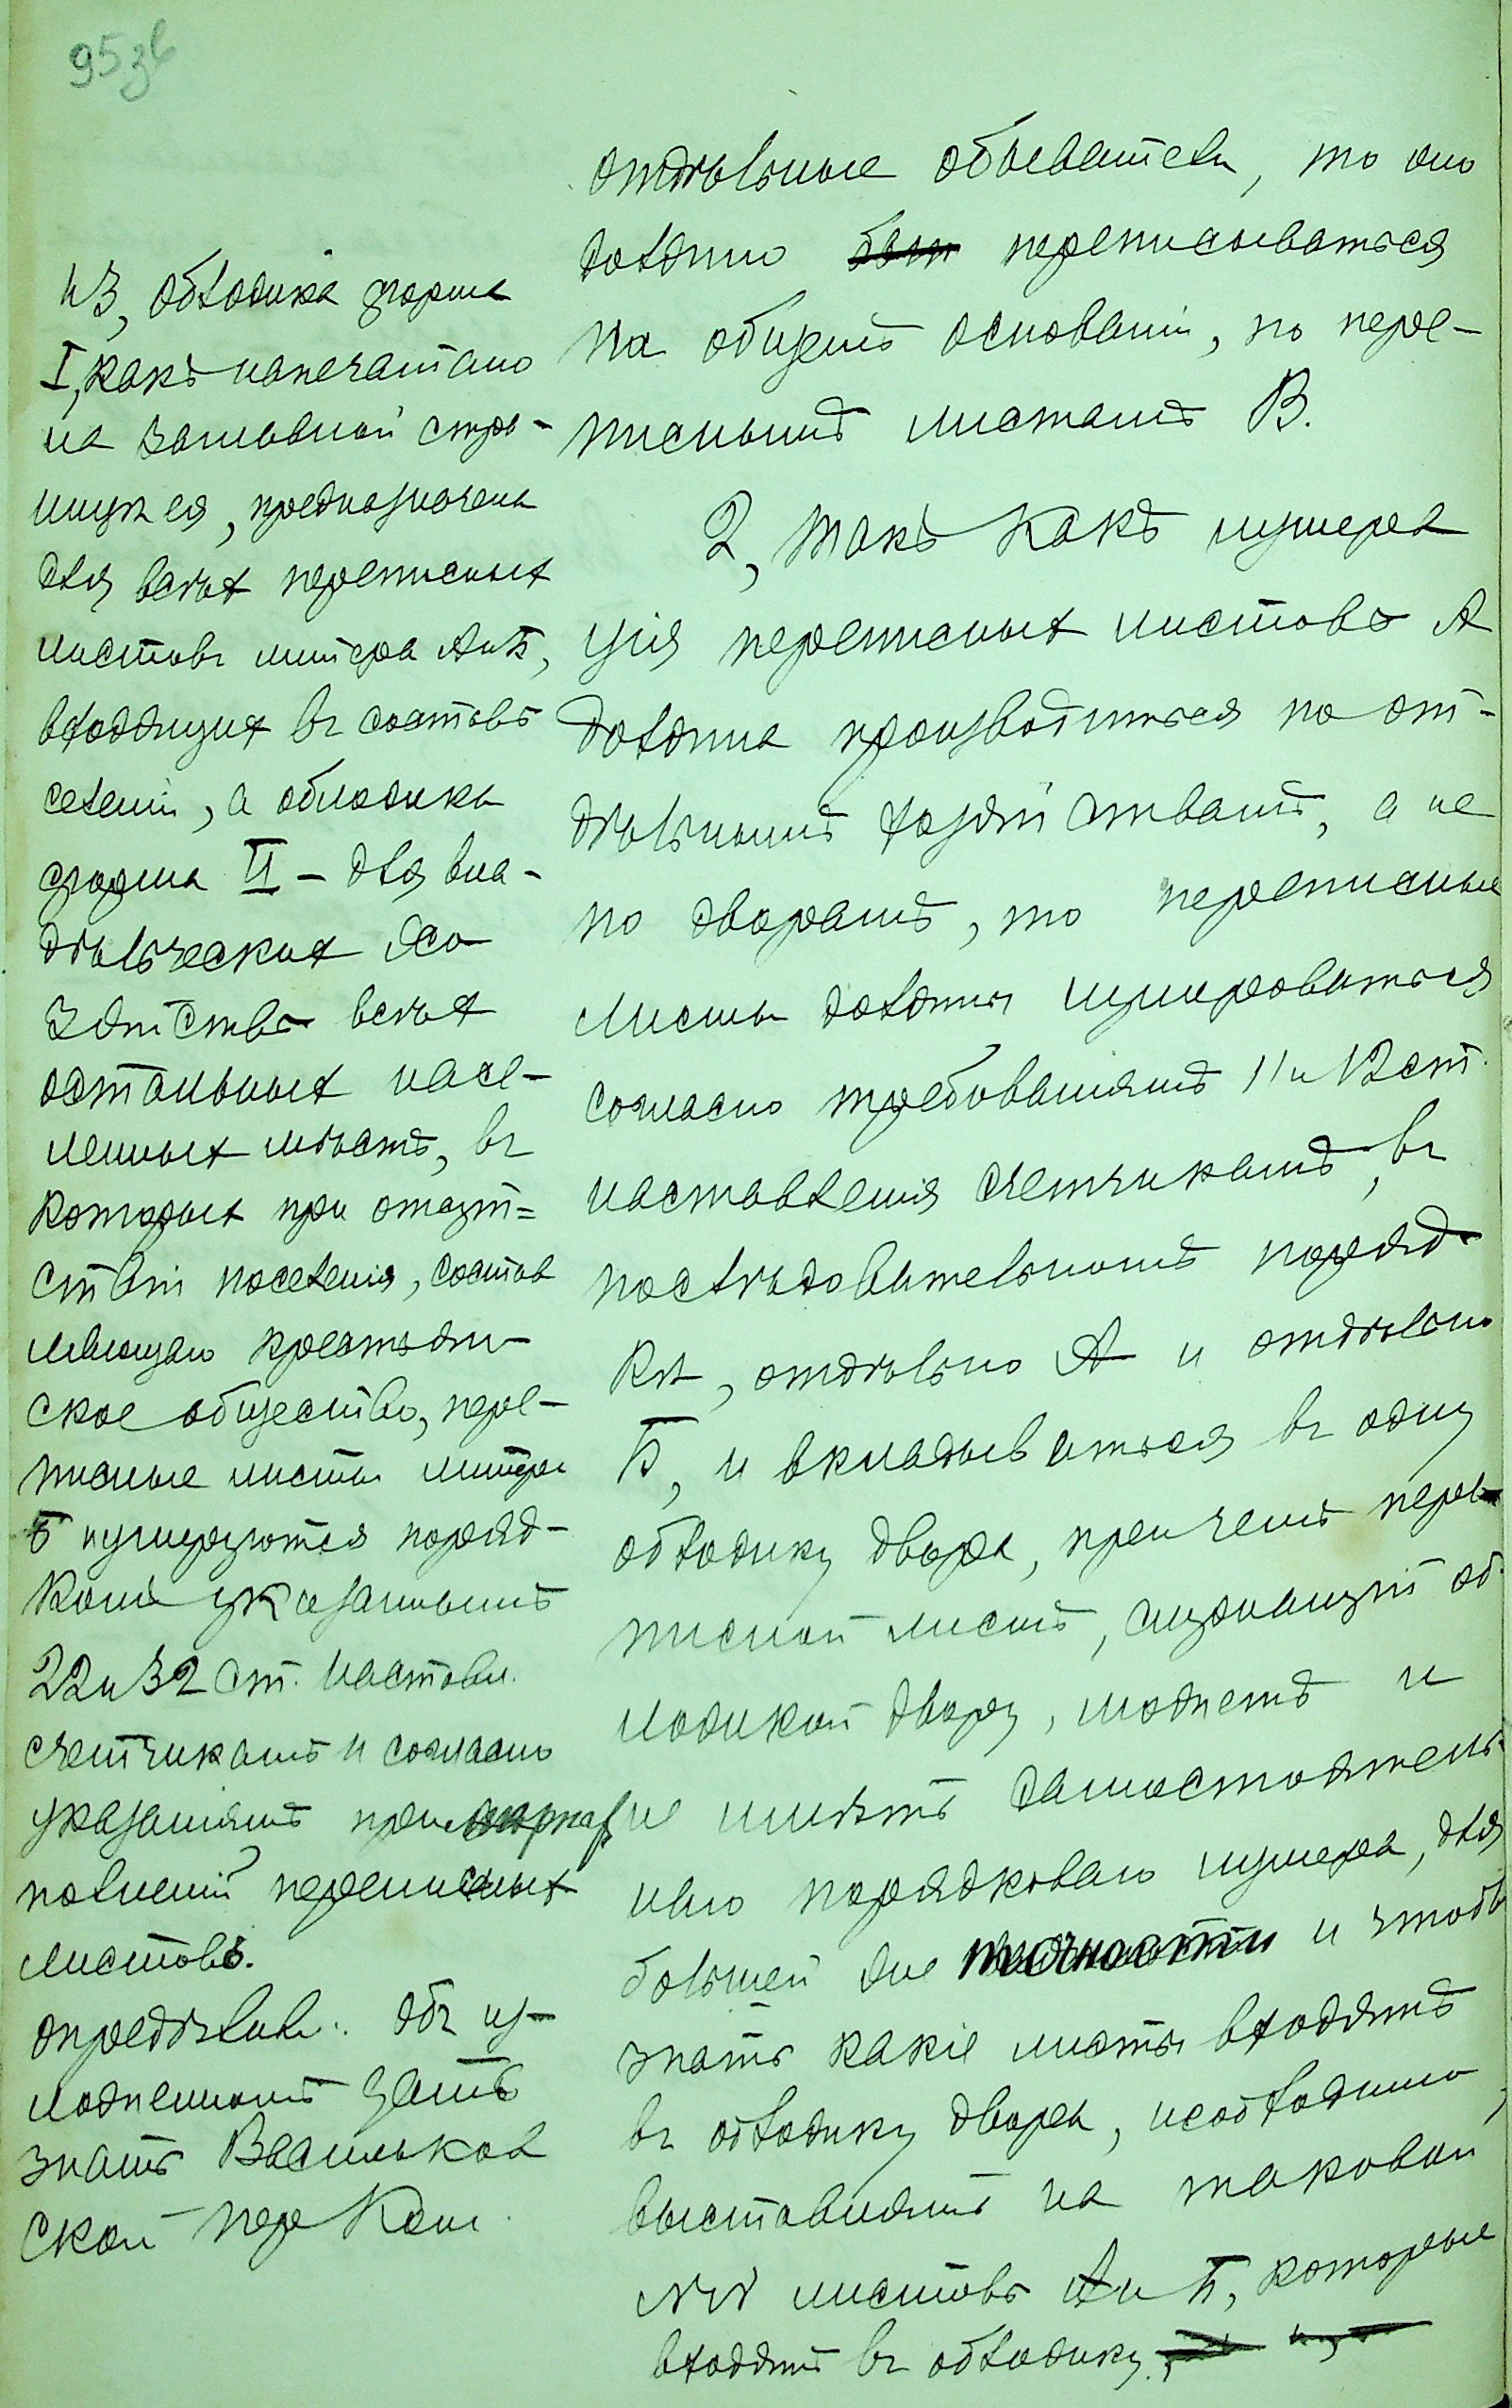 95зв
из, обложка форма
I, какъ напечатано
на заглавной стра-
ницѣ ея, предназначена
для всѣхъ переписныхъ
листовъ литера А и Б,
входящихъ въ составъ
селенія, а обложка
форма II – для вла-
дѣльческихъ хо-
зяйствъ всѣхъ
остальныхъ насе-
ленныхъ мѣстъ, въ
которыхъ при отсут=
ствіи поселенія, состав
ляющаго крестьян-
ское общество, пере-
писные листы литера
Б нумеруются поряд-
комъ указаннымъ
22 и 32 ст. наставл.
счетчикамъ и согласно
указаніямъ при
полненіи переписныхъ
листовъ.
опредѣлили: объ из-
ложенномъ дать
знать Васильков
ской пер Ком.
отдѣльные обыватели, то оно
должно быть переписываться
на общемъ основаніи, по пере-
писнымъ листамъ В.
2, такъ какъ нумера
ція переписныхъ листовъ А
должна производиться по от-
дѣльнымъ хозяйствамъ, а не
по дворамъ, то переписные
листы должны нумероваться
согласно требованіямъ 11 и 12 ст.
наставленія счетчикамъ, въ
послѣдовательномъ поряд-
кѣ, отдѣльно А и отдѣльно
Б, и вкладываться въ одну
обложку двора, при чемъ пере
писной листъ, служащій об
ложкой двору, можетъ и
не имѣть самостоятель
наго порядковаго нумера, для
большей же точности и чтобъ
знать какіе листы входятъ
въ обложку двора, необходимо
выставлять на таковой
№№ листовъ А и Б, которые
входятъ въ обложку,